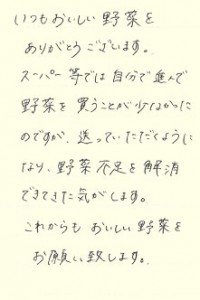 いつもおいしい野菜を
ありがとうございます。
スーパー等では自分で進んで
野菜を買うことが少なかった
のですが、送っていただくように
なり、野菜不足を解消
できてきた気がします。
これからもおいしい野菜を
お願い致します。